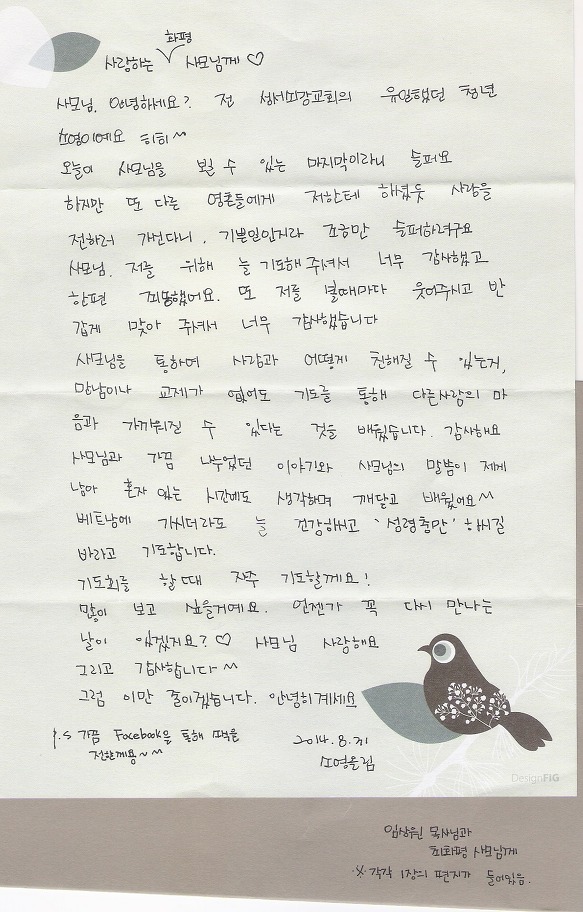 사랑하는 화평 사모님께 ♡
사모님, 안녕하세요? 전 성서제강교회의 유일했던 청년
소영이예요 히히~
오늘이 사모님을 뵐 수 있는 마지막이라니 슬퍼요
하지만 또 다른 영혼들에게 저한테 하셨듯 사랑을
전하러 가신다니, 기쁜일인지라 조금만 슬퍼하려구요
사모님, 저를 위해 늘 기도해 주셔서 너무 감사했고
한편 죄송했어요. 또 저를 볼때마다 웃어주시고 반
갑게 맞아 주셔서 너무 감사했습니다
사모님을 통하여 사람과 어떻게 친해질 수 있는거,
만남이나 교제가 없어도 기도를 통해 다른사람의 마
음과 가까워질 수 있다는 것을 배웠습니다. 감사해요
사모님과 가끔 나누었던 이야기와 사모님의 말씀이 제게
남아 혼자 있는 시간에도 생각하며 깨닫고 배웠어요~
베트남에 가시더라도 늘 건강하시고 '성령충만' 하시길
바라고 기도합니다.
기도회를 할 때 자주 기도할께요!
많이 보고 싶을거예요. 언젠가 꼭 다시 만나는
날이 있겠지요? ♡ 사모님 사랑해요
그리고 감사합니다~
그럼 이만 줄이겠습니다. 안녕히계세요
P.S 가끔 Facebook을 통해 소식을
전할께용~~
2014. 8. 31
소영올림
DesignFIG
임상우 목사님과
최화평 사모님께
※ 각각 1장의 편지가 들어있음.